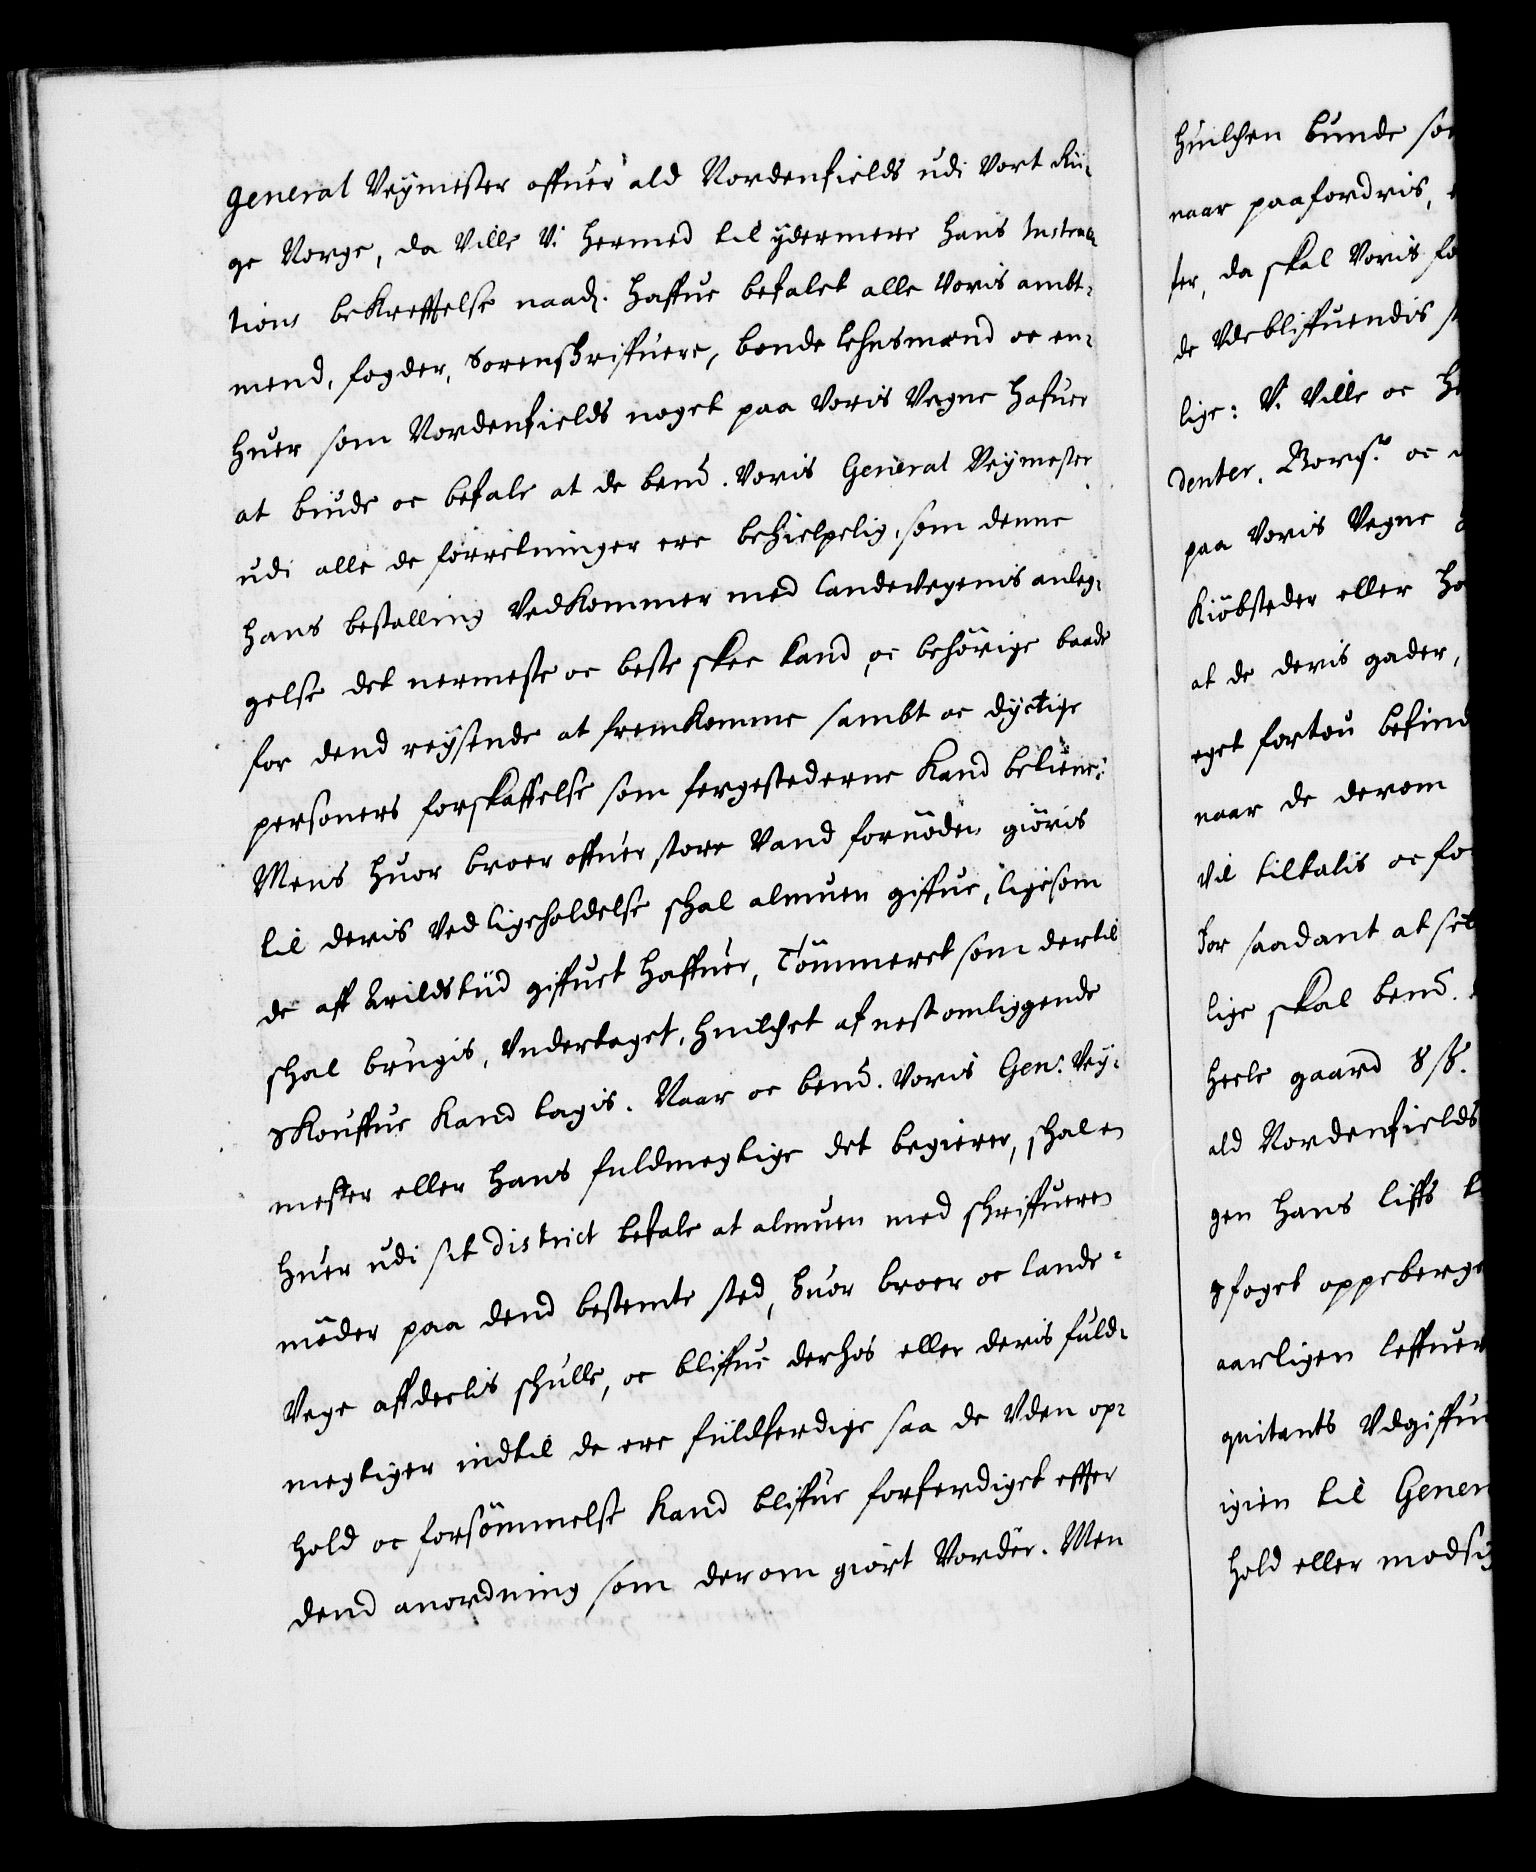 General Veÿmester offuer ald Nordenfields udi Vort Rii-
ge Norge, da Ville Vi hermed til ÿdermere hans Instruc-
tions bekrefftelse naad. haffue befalet alle Voris ambt-
mend, fogder, Sorenskriffuere, bonde lehnsmænd oc en-
huer som Nordenfields noget paa Voris Vegne hafuer
at biude oc befale at de bemd. Voris General Veÿmester
udi alle de forretninger ere behielpelig, som denne
hans bestalling Vedkommer med landevegenis anleg-
gelse det nermeste oc beste skee kand, oc behörige baade
for dend reÿsende at fremkomme sambt oc dÿctige
personers forskaffelse som fergestederne kand betiene:
Mens huor broer offuer store Vand fornöden giöris
til deris Vedligeholdelse schal almuen giffue, ligesom
de aff Arildstiid giffuet haffuer, Tömmeret som dertil
schal brugis, Undertaget, huilchet af nest omliggende
Skouffue kand tagis. Naar oc bemd. Voris Gen: Veÿ-
mester eller hans fuldmegtige det begierer, schal en
huer udi sit District befale at almuen med schriffueren
möder paa dend bestemte sted, huor broer oc lande-
Vege affdeelis schulle, oc bliffue derhos eller deris fuld-
megtiger indtil de ere fuldferdige saa de Uden op-
hold oc forsömmelse kand bliffue forferdiget effter
dend anordning som derom giort Vorder. Men
huilchen bunde so
naar paafordris,
ter, da skal Voris fo
de Udebliffuendis
lige: Vi Ville oc
denter, Borg. oc
paa Voris Vegne
Kiöbsteder eller
at de deris gader,
eget fortou befind
naar de derom
Vil tiltalis oc fo
for saadant at
lige skal bemd.
heele gaard 8 ß.
ald Nordenfields
gen hans liffs
foget oppeberge
aarligen leffuer
quitants Udgiffu
igien til Gener
hold eller modsi